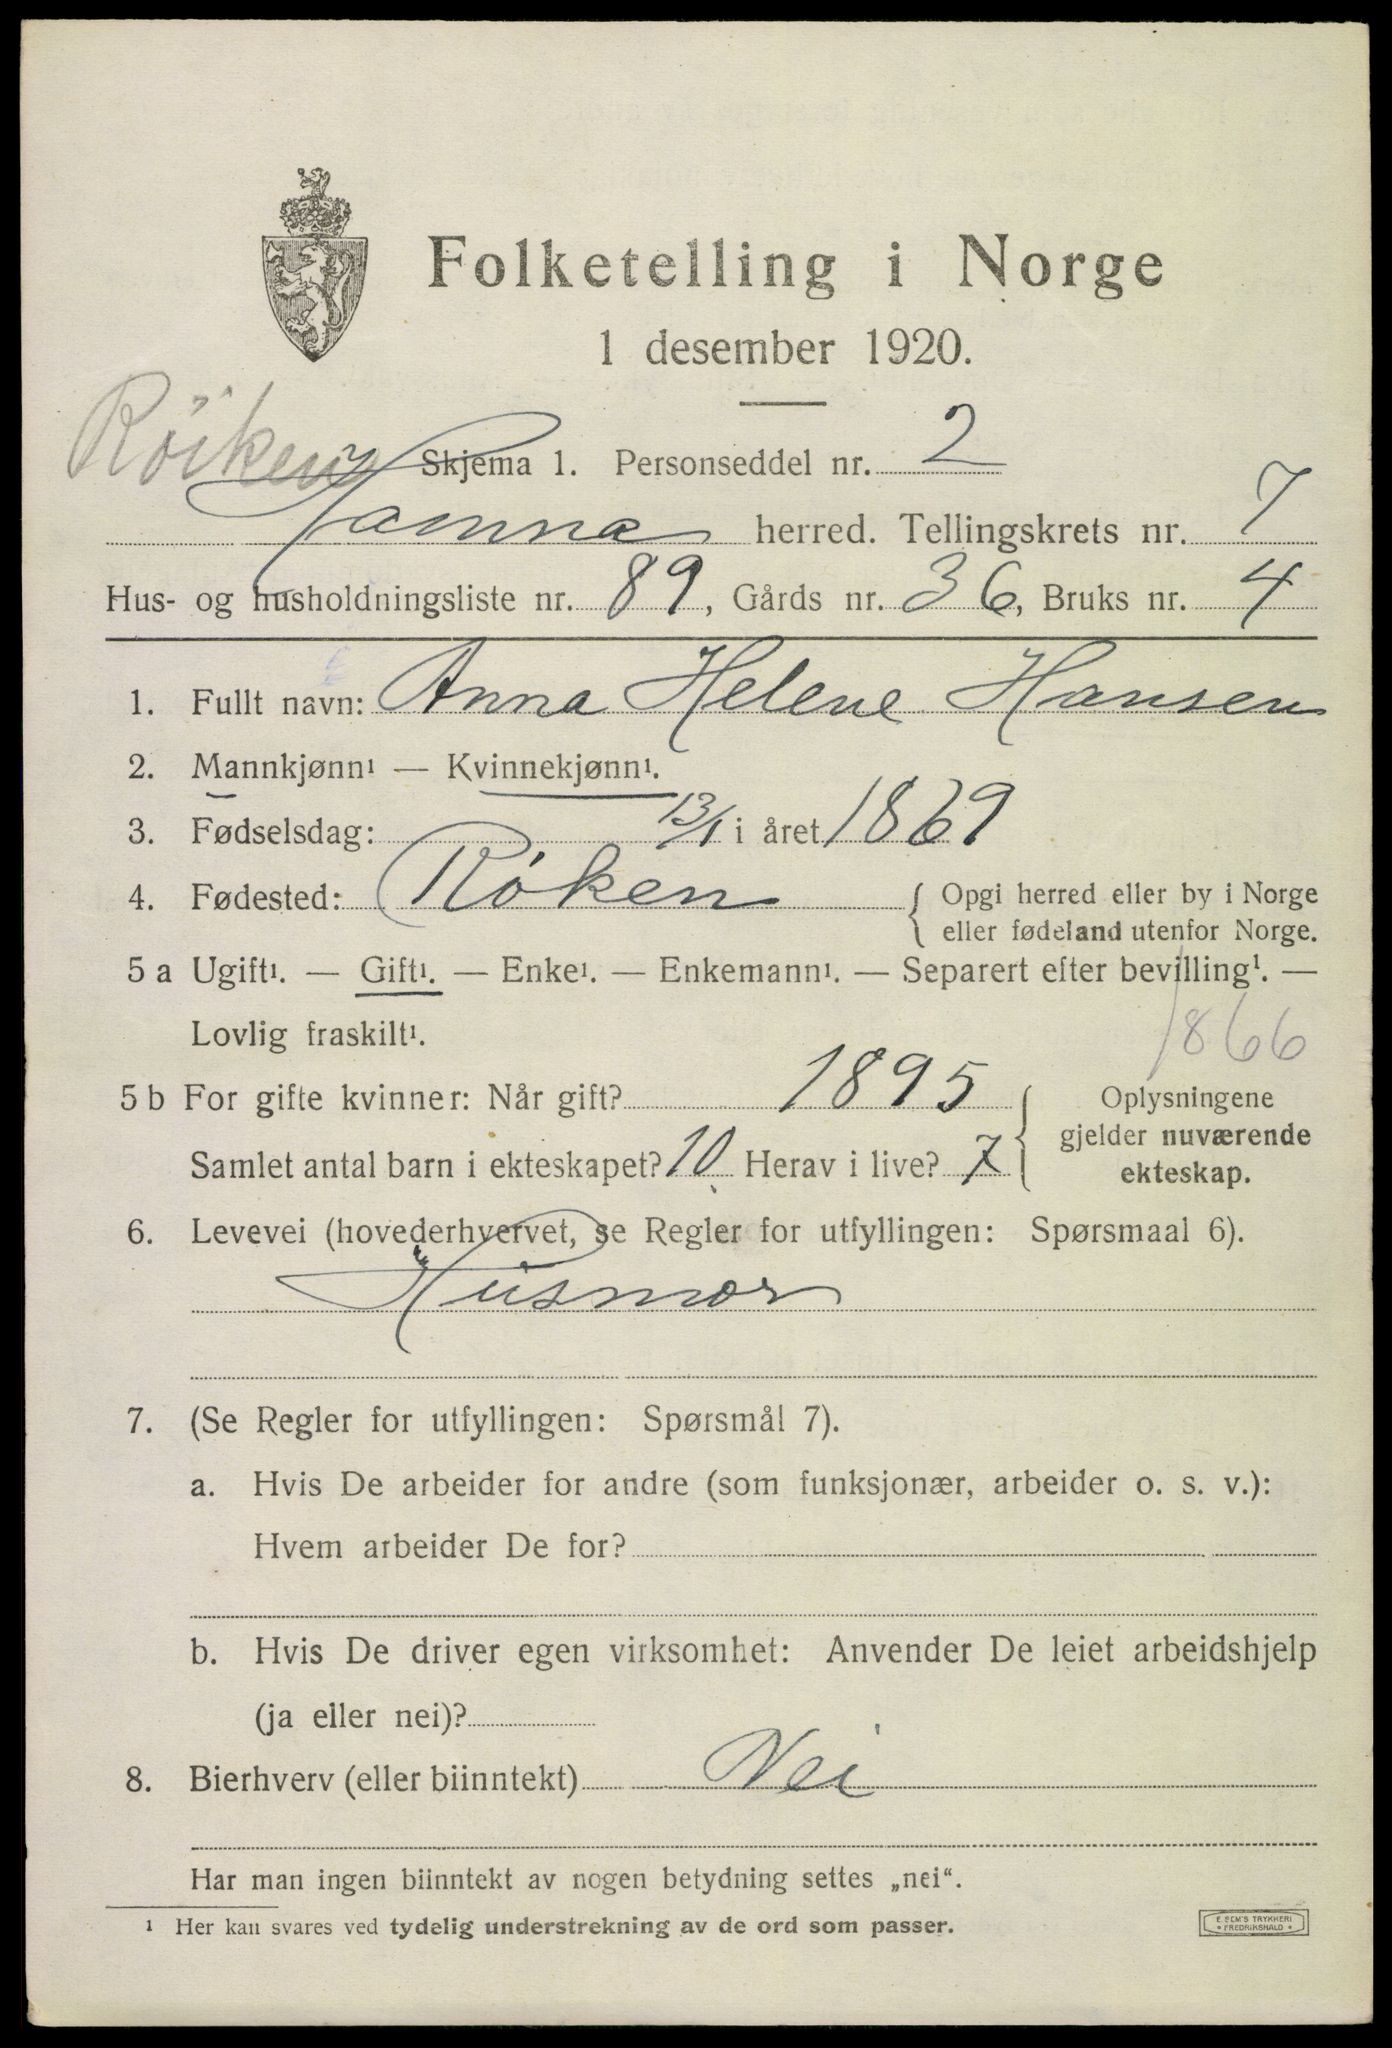 Folketelling i Norge
1 desember 1920.
Röiken
Skjema 1. Personseddel nr. 2
Hamna herred. Tellingskrets nr. 7
Hus- og husholdningsliste nr. 89, Gårds nr. 36, Bruks nr. 4
1. Fullt navn: Anna Helene Hansen
2. Mannkjønn¹ — Kvinnekjønn¹.
3. Fødselsdag: 13/1 i året 1869
4. Fødested: Røken { Opgi herred eller by i Norge
eller fødeland utenfor Norge.
5 a Ugift¹. — Gift¹. — Enke¹. — Enkemann¹. — Separert efter bevilling¹. —
Lovlig fraskilt¹.
1866
5 b For gifte kvinner: Når gift? 1895
Samlet antal barn i ekteskapet? 10 Herav i live? 7
} Oplysningene
gjelder nuværende
ekteskap.
6. Levevei (hovederhvervet, se Regler for utfyllingen: Spørsmaal 6).
Husmor
7. (Se Regler for utfyllingen: Spørsmål 7).
a. Hvis De arbeider for andre (som funksjonær, arbeider o. s. v.):
Hvem arbeider De for?
b. Hvis De driver egen virksomhet: Anvender De leiet arbeidshjelp
(ja eller nei)?
8. Bierhverv (eller biinntekt) Nei
Har man ingen biinntekt av nogen betydning settes „nei“.
¹ Her kan svares ved tydelig understrekning av de ord som passer.
E SEM'S TRYKKERI
• FREDRIKSHALD •